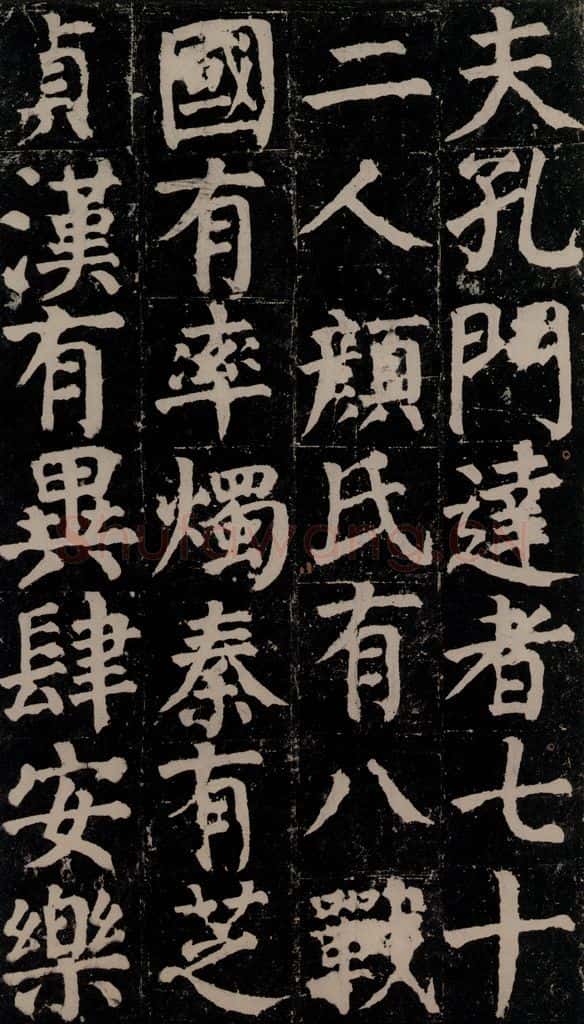 夫孔門達者七十
二人顏氏有八戰
國有率燭秦有芝
貞漢有異肆安樂
shufawang.cn